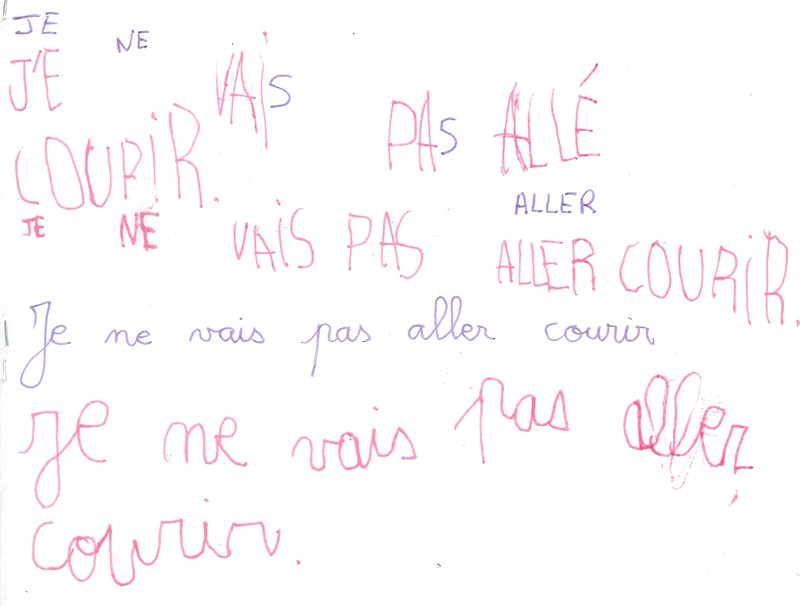 JE NE
J'E VAIS PAS ALLÉ
COURIR.
ALLER
JE NE VAIS PAS ALLER COURIR.
Je ne vais pas aller courir
Je ne vais pas aller
courir.